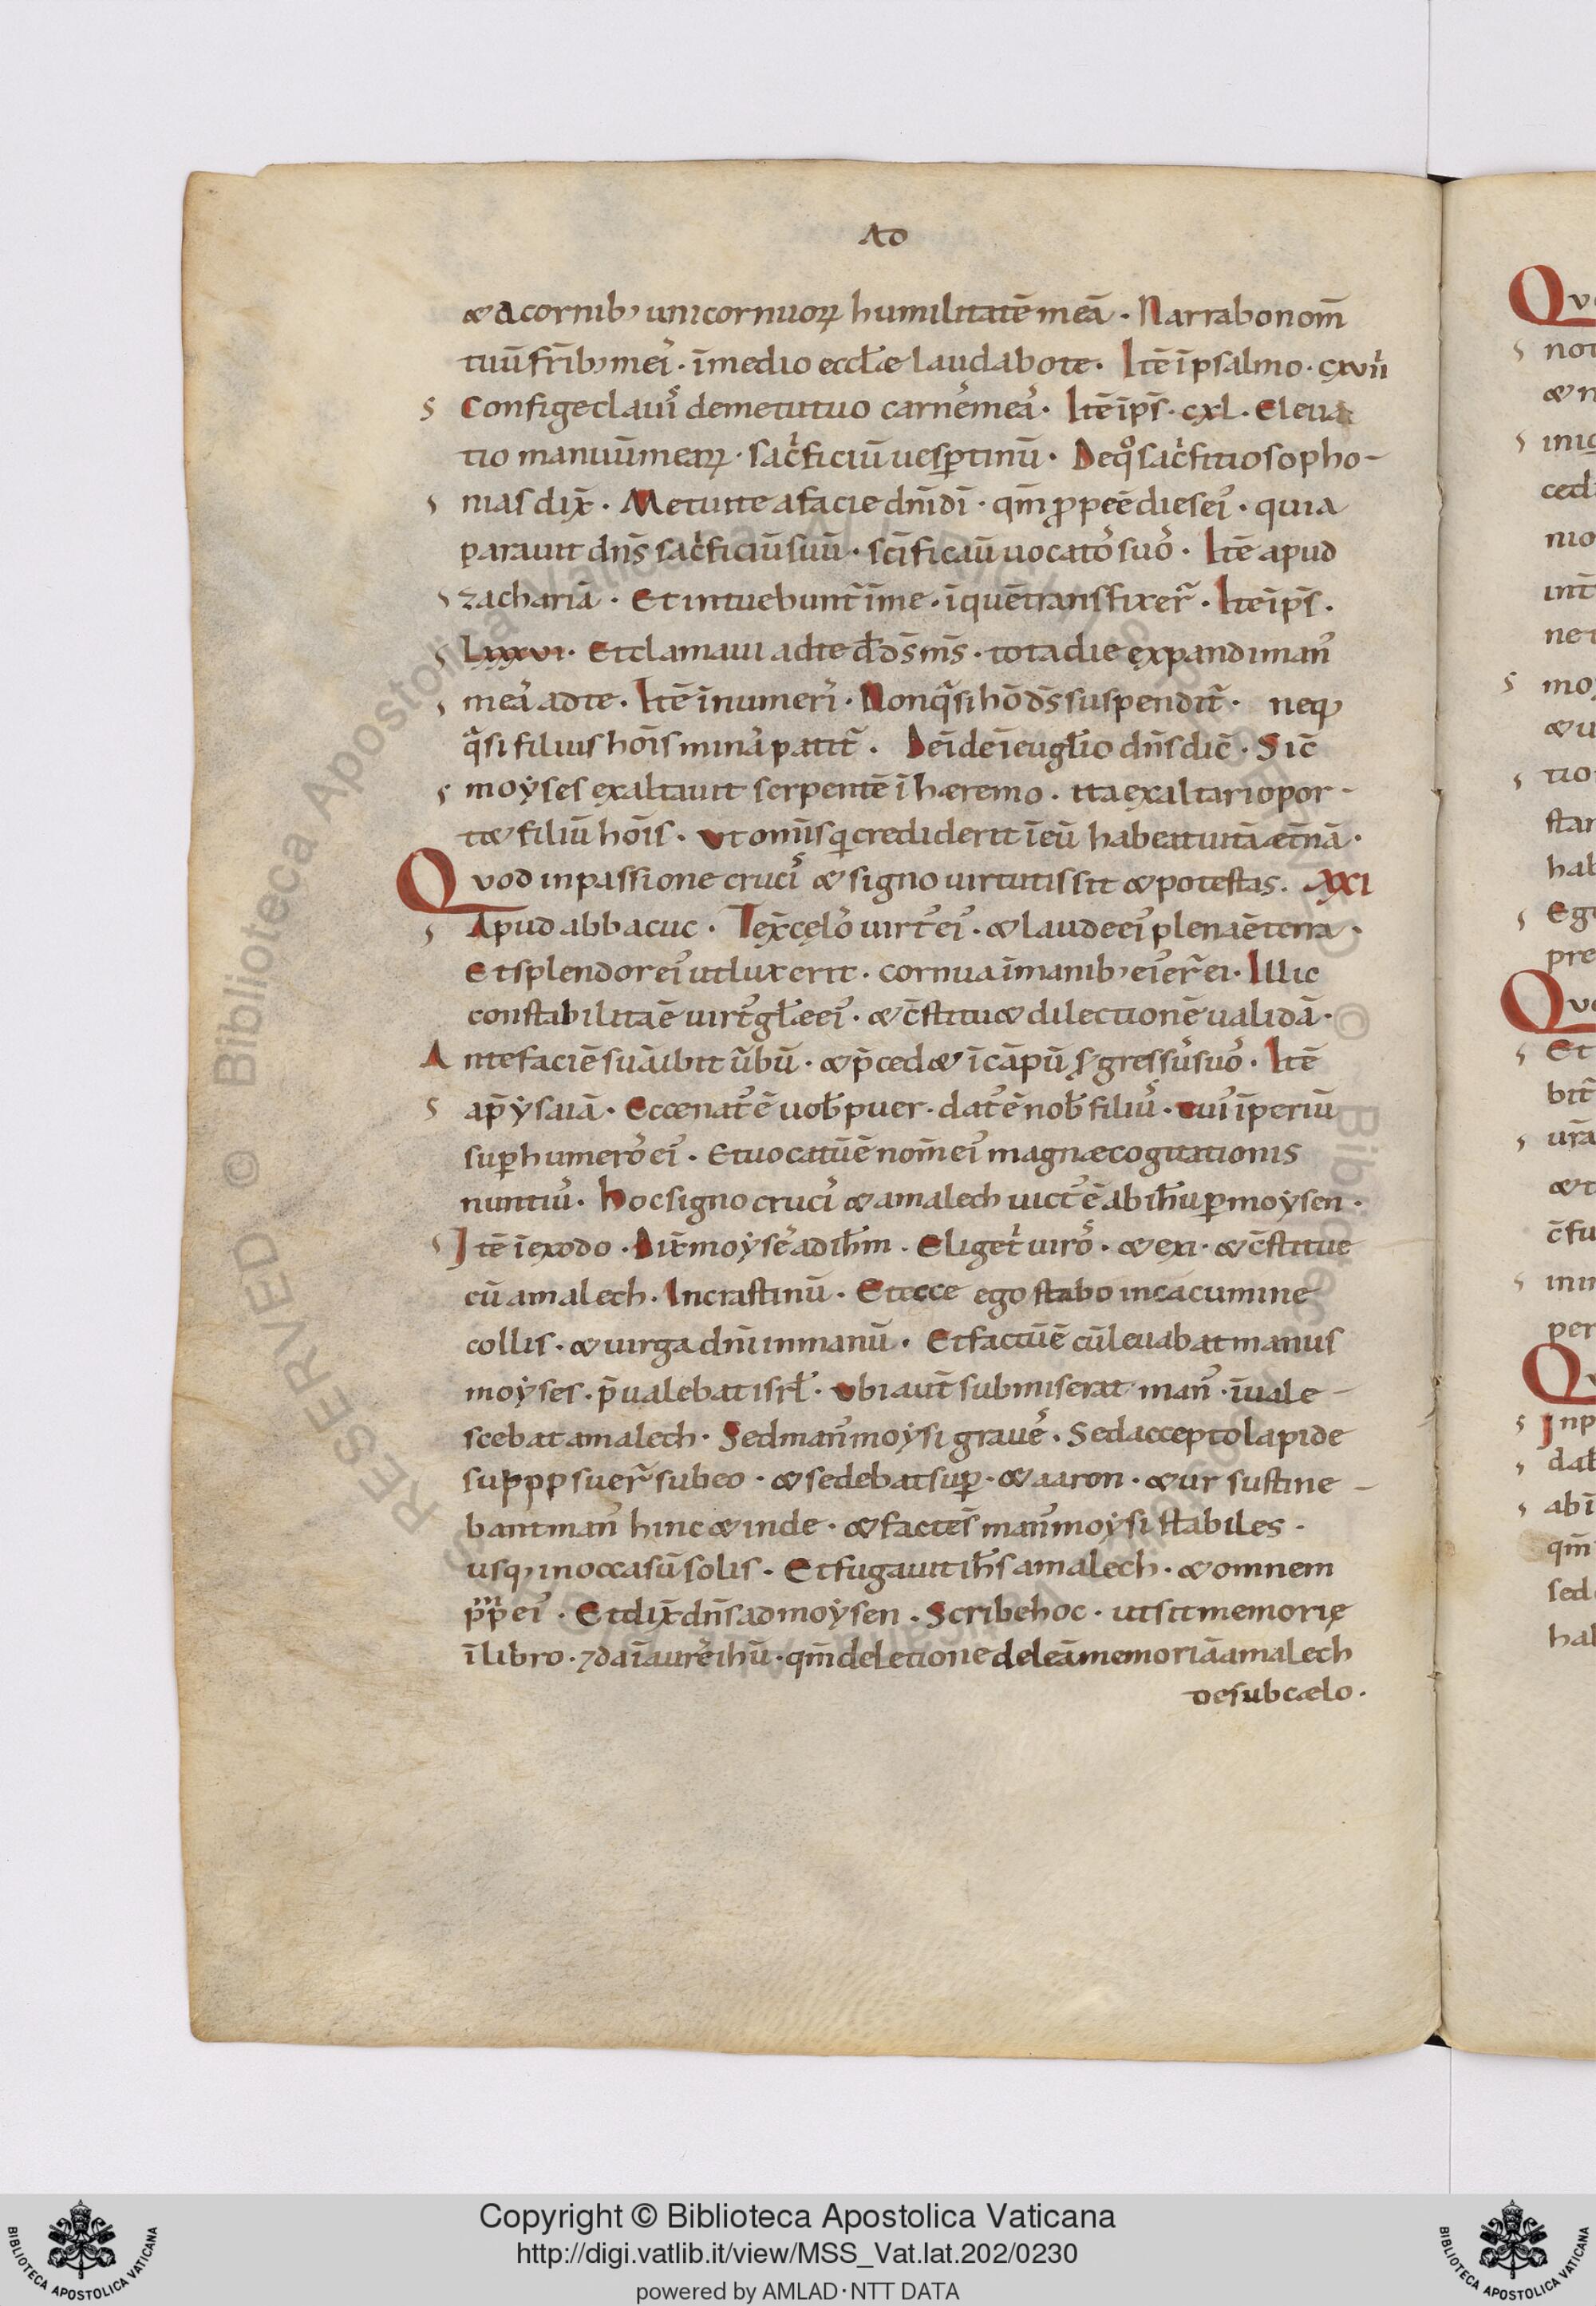 AD
& a cornib; unicornuoꝝ humilitatē meā · Narrabo nom̄
tuū fr̄ib; mei᾽ · ī medio eccl̄æ laudabo te · Itē ī psalmo · cxvii
Confige claui᾽ de metu tuo carne᾽ mea᾽ · Itē ī ps̄ · cxl · Eleua
tio manuū mearꝝ · sac̓ficiū uesꝑtinū · De qͦ sac̓fitio sopho-
nias dix̄ · Metuite a facie dn̄i dī · qm̄ ꝓpe ē dies ei᾽ · quia
parauit dn̄s sac̓ficiū suū · sc̄ificau̅ uocato᾽ suo᾽ · Itē apud
zachariā · Et intuebunt᷑ ī me · ī quē transfixer᷑ · Itē ī ps̄ ·
Lxxxvi · Et clamaui ad te d̄ d̄s m̄s · tota die expandi man᾽
mea᾽ ad te · Itē ī numeri᾽ · Non qͣsi hō d̄s suspendit᷑ · neq;
qͣsi filius hōis mina᾽ patit᷑ · Deīde ī eugl̄io dn̄s dic̄ · Sic̄
moẏses exaltauit serpentē ī hæremo · ita exaltari opor-
t& filiū hōis · ut om̄is qi crediderit ī eū habeat uitā æt̄nā ·
Quod in passione cruci᾽ & signo uirtutis sit & potestas · XXI
Apud abbacuc · Texc̄elo᾽ uirt᾽ ei᾽ · & laude ei᾽ plena ē terra ·
Et splendor ei᾽ ut lux erit · cornua ī manib; ei᾽ er᷑ ei · Illic
constabilita ē uirt᾽ gl̄æ ei᾽ · & c̄stitu& dilectionē ualidā ·
Ante faciē suā ibit ūbū · & p̄ced& ī cāpū s; gressu᾽ suo᾽ · Itē
ap̄ ẏsaiā · Ecce nat᾽ ē uob̄ puer · dat᾽ ē nob̄ filiu᾽ · cui᾽ īperiū
suꝑ humero᾽ ei᾽ · Et uocatū ē nom̄ ei᾽ magnæ cogitationis
nuntiu᾽ · Hoc signo cruci᾽ & amalech uict᾽ ē ab ih̄u ꝑ moẏsen ·
Itē ī exodo · Dix̄ moẏse᾽ ad ih̄m · Eliget̓ uiro᾽ · & exi · & c̄stitue
cū amalech · In crastinū · Et ecce ego stabo in cacumine
collis · & uirga dn̄i in manū · Et factū ē cū leuabat manus
moẏses · p̄ualebat isrl̄ · ubi aut̄ submiserat man᾽ · īuale-
scebat amalech · Sed man᾽ moẏsi graue᾽ · Sed accepto lapide
supppsuer᷑ sub eo · & sedebat suꝑ · & aaron · & ur sustine-
bant man᾽ hinc & inde · & facte s̄ man᾽ moẏsi stabiles ·
usq; in occasū solis · Et fugauit ih̄s amalech · & omnem
p̄p̄ ei᾽ · Et dix̄ dn̄s ad moẏsen · Scribe hoc · ut sit memorię
ī libro · ⁊ da ī aure᾽ ih̄ū · qm̄ deletione deleā memoriā amalech
de sub cælo ·
Copyright © Biblioteca Apostolica Vaticana
http://digi.vatlib.it/view/MSS_Vat.lat.202/0230
powered by AMLAD·NTT DATA